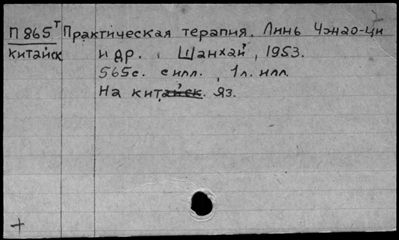 П865т Практическая терапия. Линь Чжао-ци
китайск и др. Шанхай, 1953.
565с. с илл., 1л. илл.
На китайск. яз.
+